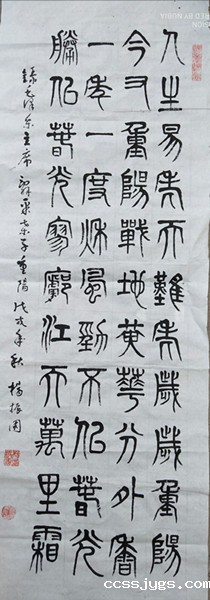 人生易老天難老歲歲重陽
今又重陽戰地黃華分外香
一年一度秋風勁不似春光
勝似春光寥廓江天萬里霜
錄毛澤東主席辭采桑子重陽戊戌年秋楊振国
ccssjygs.com